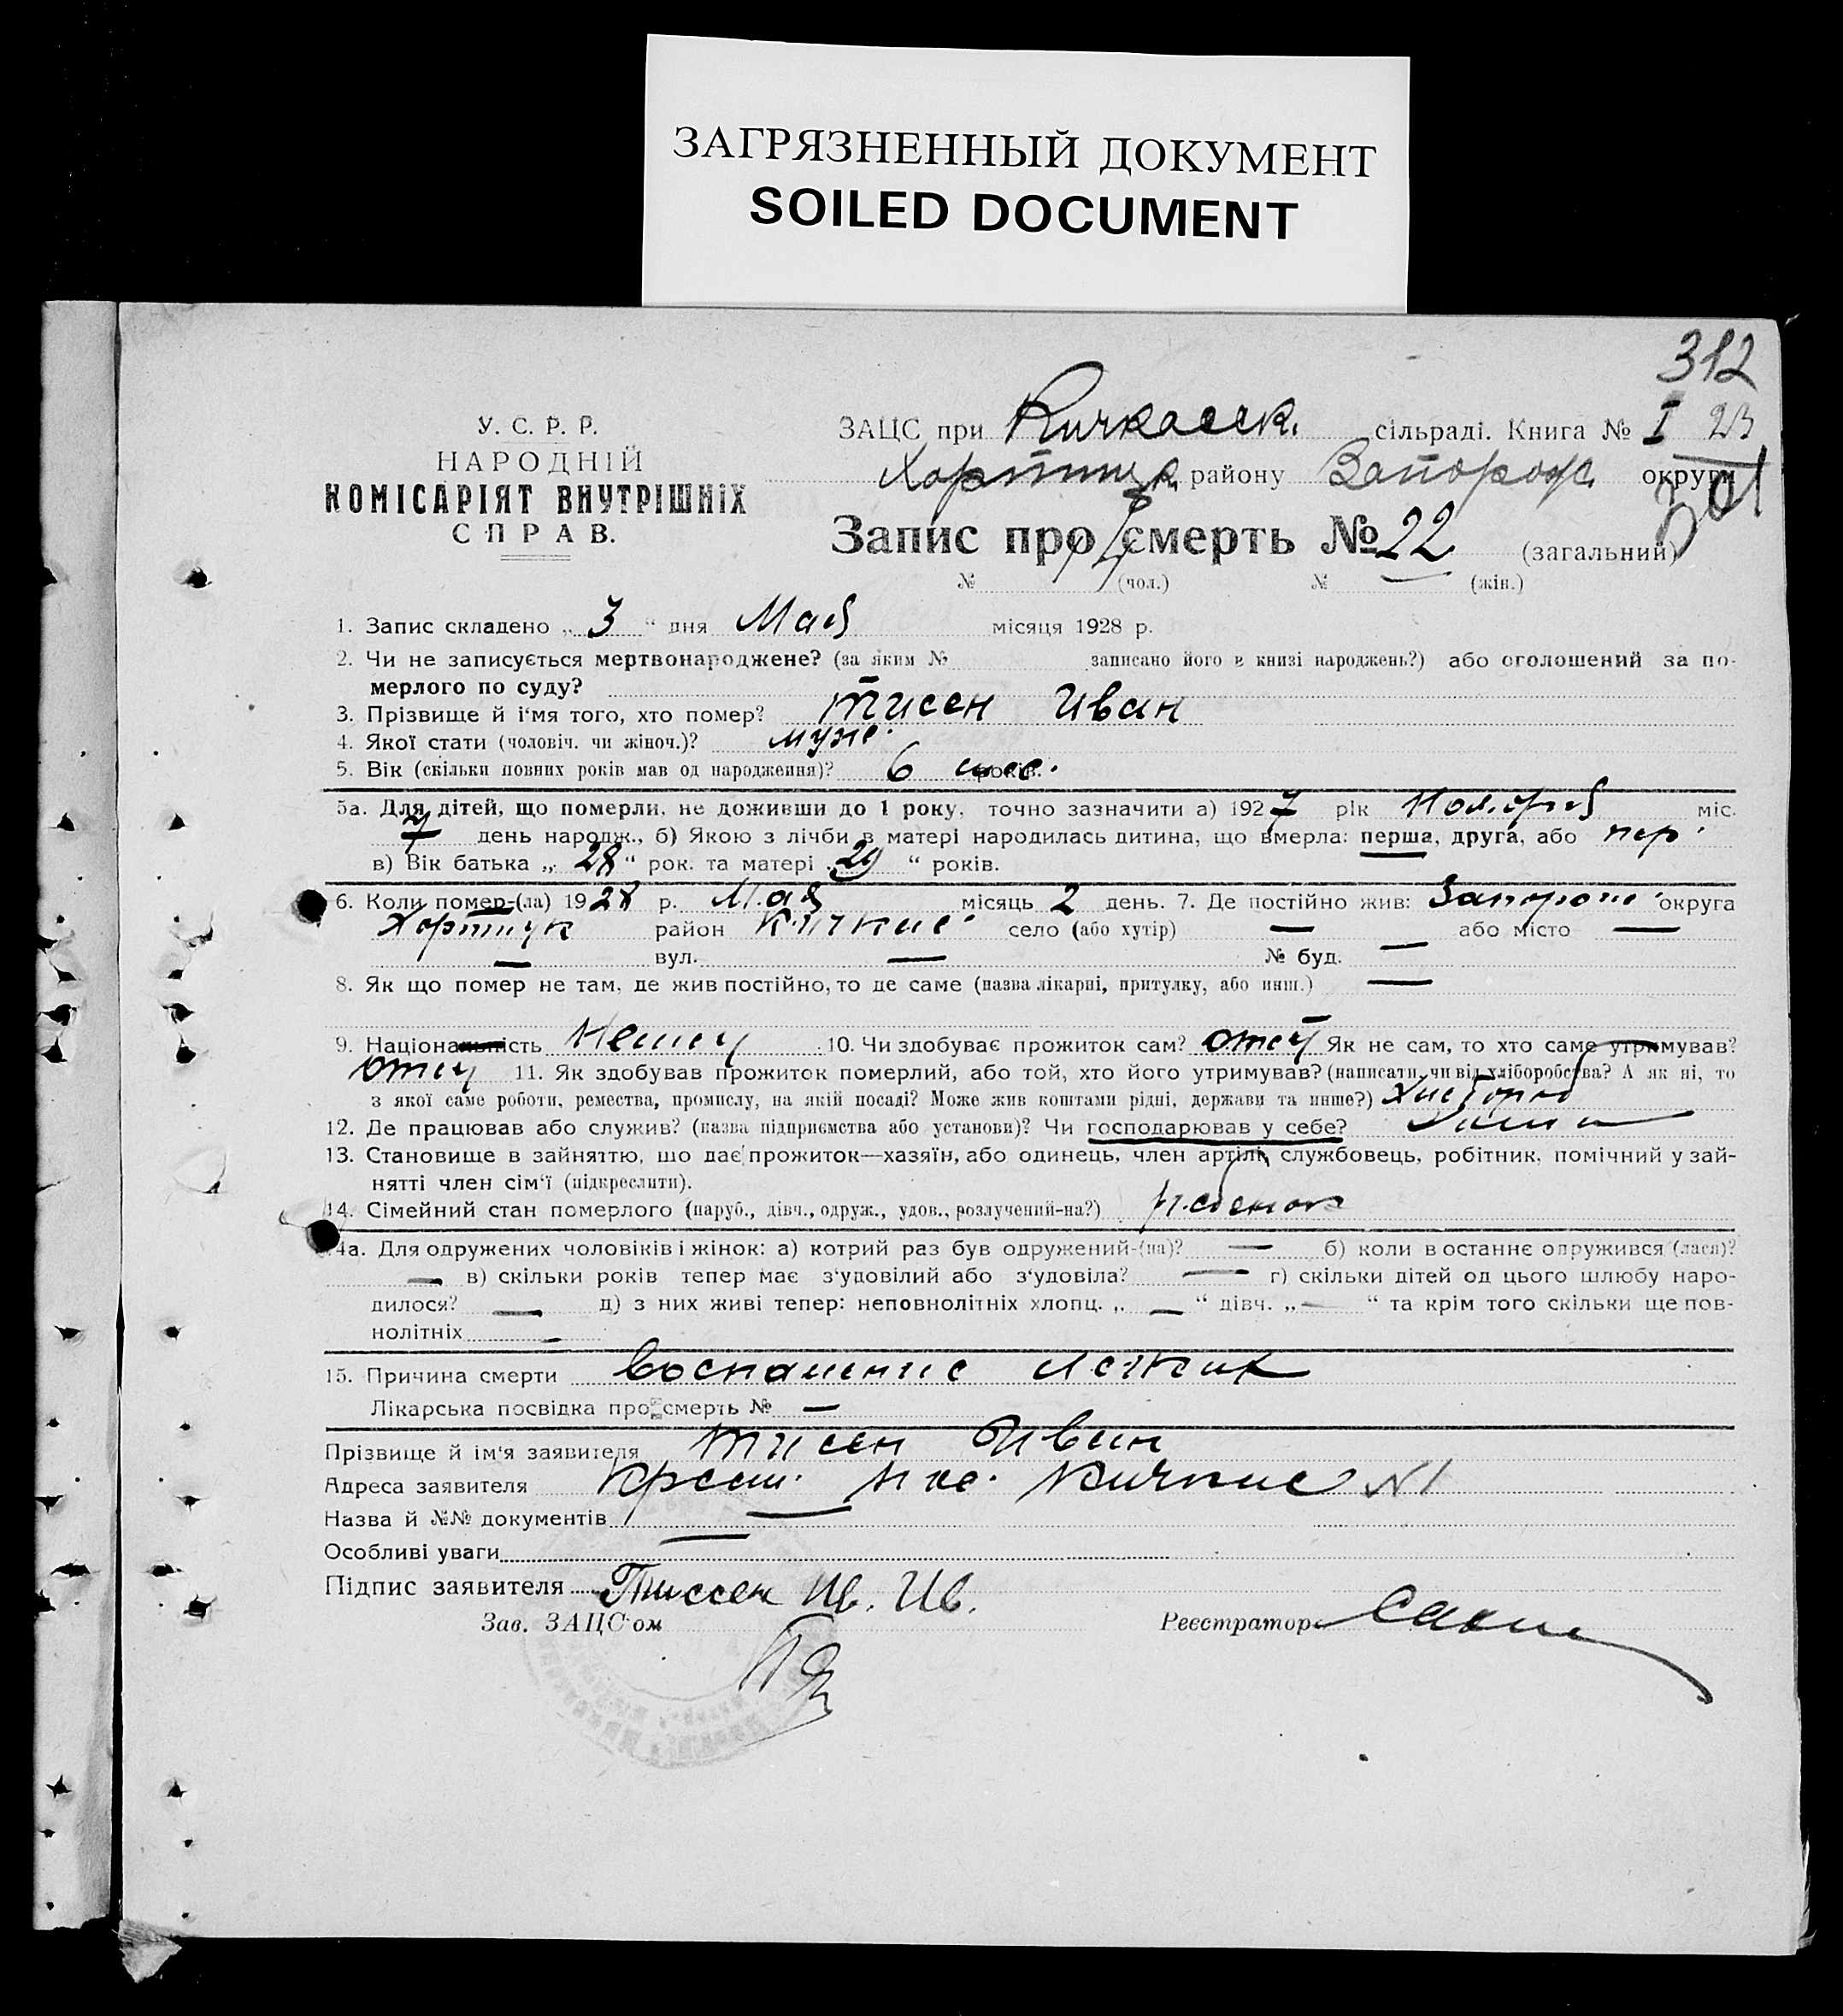 ЗАГРЯЗНЕННЫЙ ДОКУМЕНТ
SOILED DOCUMENT
312
У. С. Р. Р.
НАРОДНІЙ
КОМІСАРІЯТ ВНУТРІШНІХ
СПРАВ.
ЗАЦС при Кичкасск. сільраді. Книга № I 23
Хортицк. району Запорож. округи
Запис про смерть № 22 (загальний)
№ (чол.) № — (жін.)
1. Запис складено „ 3 “ дня Мая місяця 1928 р.
2. Чи не записується мертвонароджене? (за яким № записано його в книзі народжень?) або оголошений за по-
мерлого по суду?
3. Прізвище й і'мя того, хто помер? Тисен Иван
4. Якої стати (чоловіч. чи жіноч.)? муж.
5. Вік (скільки повних років мав од народження)? 6 мес. років.
5а. Для дітей, що померли, не доживши до 1 року, точно зазначити а) 1927 рік Ноября міс.
7 день народж., б) Якою з лічби в матері народилась дитина, що вмерла: перша, друга, або пер.
в) Вік батька „ 28 “ рок. та матері „ 29 “ років.
6. Коли помер-(ла) 1928 р. Мая місяць 2 день. 7. Де постійно жив: Запорож. округа
Хортицк район Кичкас село (або хутір) — або місто —
— вул. — № буд. —
8. Як що помер не там, де жив постійно, то де саме (назва лікарні, притулку, або инш.) —
9. Національність Немец 10. Чи здобуває прожиток сам? отец Як не сам, то хто саме утримував?
отец 11. Як здобував прожиток померлий, або той, хто його утримував? (написати, чи від хліборобства? А як ні, то
з якої саме роботи, ремества, промислу, на якій посаді? Може жив коштами рідні, держави та инше?)
12. Де працював або служив? (назва підприємства або установи)? Чи господарював у себе?
13. Становище в зайняттю, що дає прожиток—хазяїн, або одинець, член артілі, службовець, робітник, помічний у зай-
нятті член сім'ї (підкреслити).
14. Сімейний стан померлого (паруб., дівч., одруж., удов., розлучений-на?) ребенок
14а. Для одружених чоловіків і жінок: а) котрий раз був одружений-(на)? — б) коли в останнє одружився (лася)?
— в) скільки років тепер має з'удовілий або з'удовіла? — г) скільки дітей од цього шлюбу наро-
дилося? — д) з них живі тепер: неповнолітніх хлопц. „ — “ дівч. „ — “ та крім того скільки ще пов-
нолітніх —
15. Причина смерти Воспаление легких
Лікарська посвідка про смерть № —
Прізвище й ім'я заявителя Тисен Иван
Адреса заявителя Кичкас N1
Назва й №№ документів —
Особливі уваги —
Підпис заявителя Тиссен Ив. Ив.
Зав. ЗАЦС'ом Реєстратор